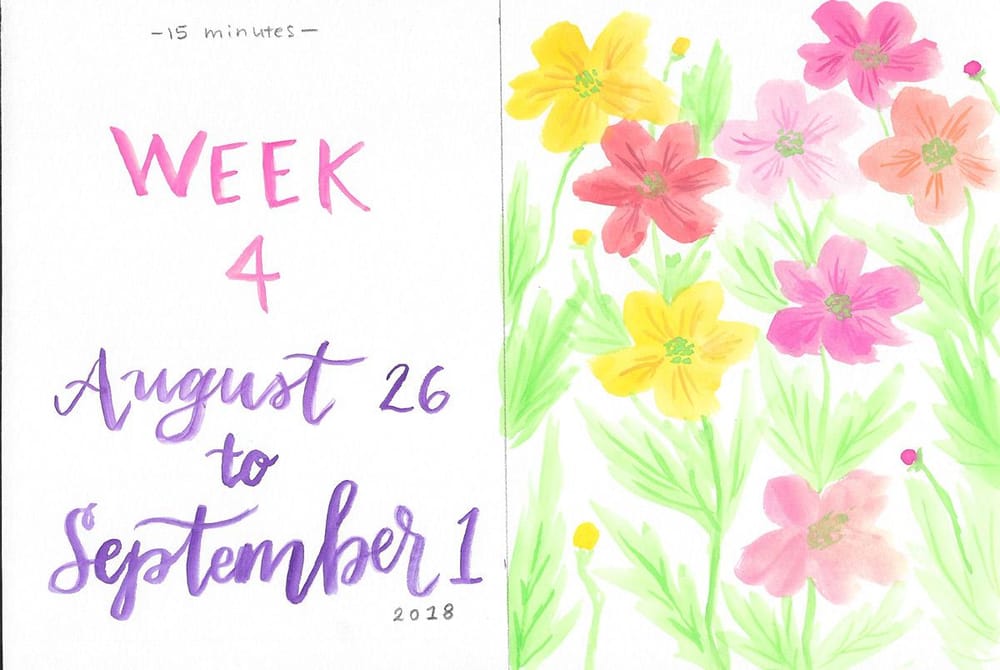 -15 minutes-
WEEK
4
August 26
to
September 1
2018